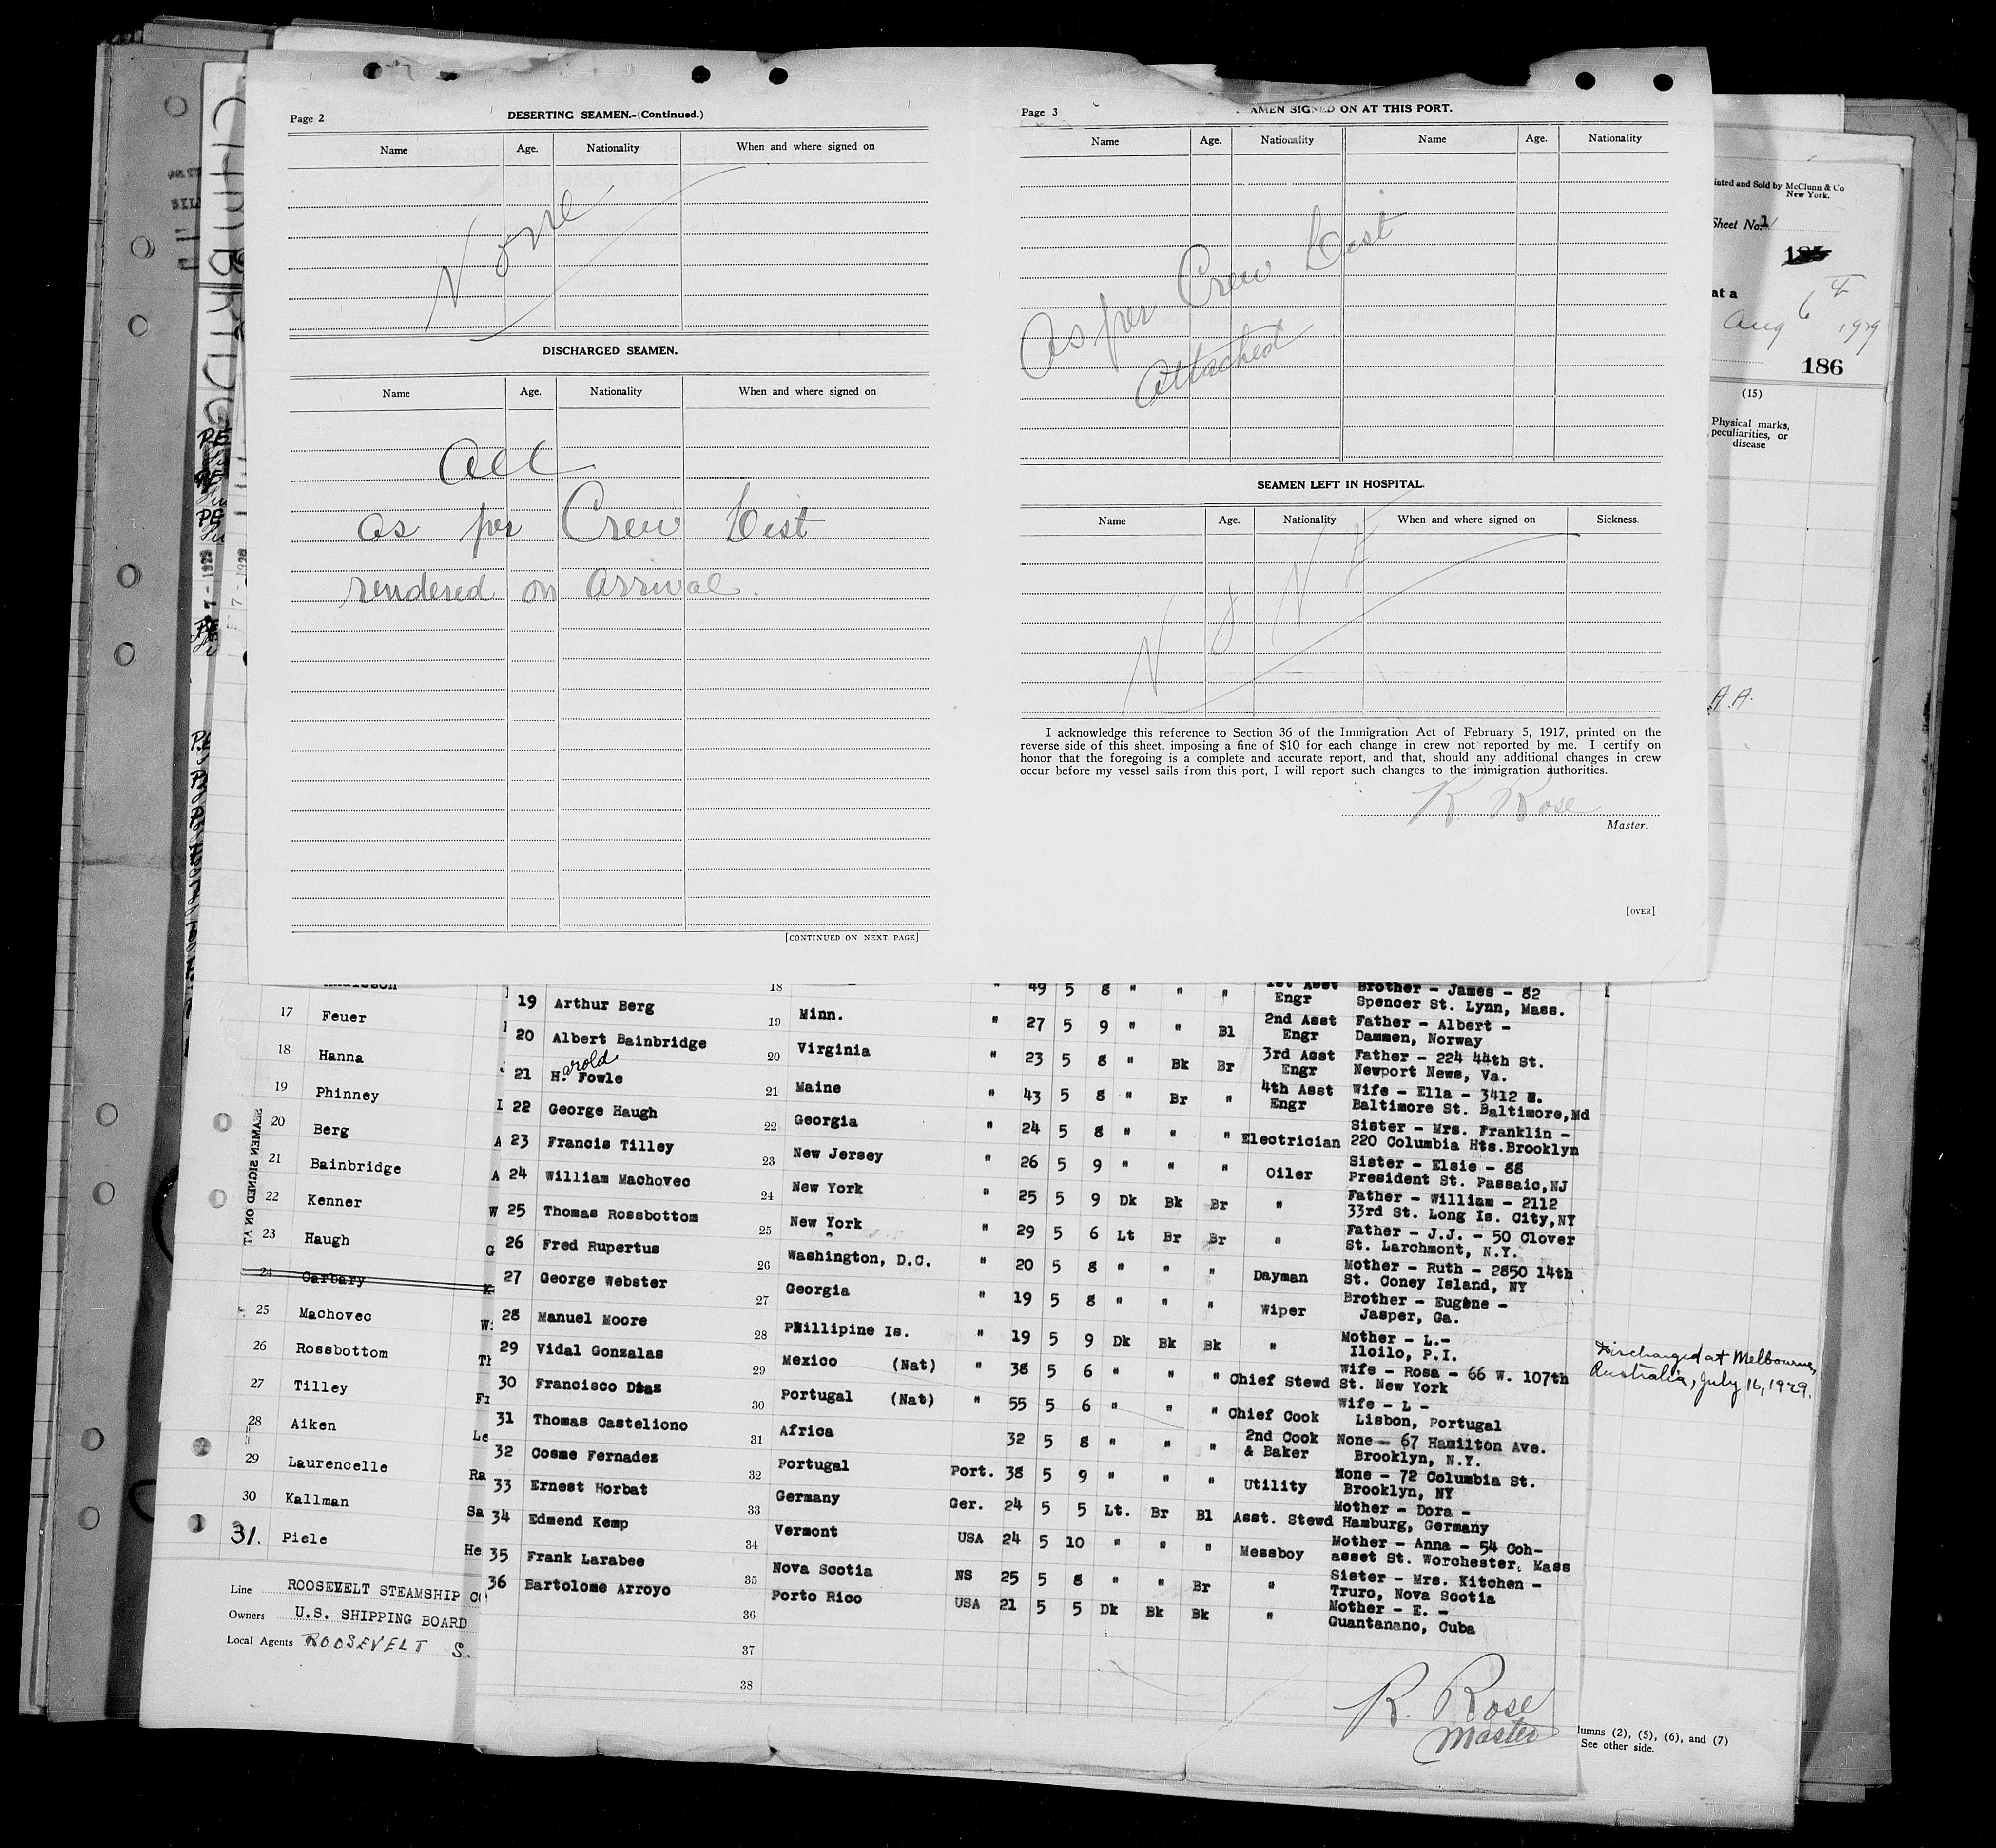 Page 2
DESERTING SEAMEN.-(Continued.)
Name Age. Nationality When and where signed on
None
DISCHARGED SEAMEN.
Name Age. Nationality When and where signed on
All
as per Crew List
rendered on arrival.
[CONTINUED ON NEXT PAGE]
Page 3
AMEN SIGNED ON AT THIS PORT.
Name Age. Nationality Name Age. Nationality
As per Crew List
attached
SEAMEN LEFT IN HOSPITAL.
Name Age. Nationality When and where signed on Sickness.
NONE
I acknowledge this reference to Section 36 of the Immigration Act of February 5, 1917, printed on the
reverse side of this sheet, imposing a fine of $10 for each change in crew not reported by me. I certify on
honor that the foregoing is a complete and accurate report, and that, should any additional changes in crew
occur before my vessel sails from this port, I will report such changes to the immigration authorities.
R. Rose
Master.
[OVER]
inted and Sold by McClunn & Co
New York.
Sheet No. 1
185
at a
Aug 6 1929
186
(15)
Physical marks,
peculiarities, or
disease
A.A.
17 Feuer
18 Hanna
19 Phinney
20 Berg
21 Bainbridge
22 Kenner
23 Haugh
24 Carbary
25 Machovec
26 Rossbottom
27 Tilley
28 Aiken
29 Laurencelle
30 Kallman
31. Piele
SEAMEN SIGNED ON AT
Line ROOSEVELT STEAMSHIP CO
Owners U.S. SHIPPING BOARD
Local Agents ROOSEVELT S.
18 " 49 5 8 " " " 1st Asst Engr Brother - James - 82 Spencer St. Lynn, Mass.
19 Arthur Berg 19 Minn. " 27 5 9 " " Bl 2nd Asst Engr Father - Albert - Dammen, Norway
20 Albert Bainbridge 20 Virginia " 23 5 8 " Bk Br 3rd Asst Engr Father - 224 44th St. Newport News, Va.
21 H.arold Fowle 21 Maine " 43 5 8 " Br " 4th Asst Engr Wife - Ella - 3412 E. Baltimore St. Baltimore,Md
22 George Haugh 22 Georgia " 24 5 8 " " " Electrician Sister - Mrs. Franklin - 220 Columbia Hts.Brooklyn
23 Francis Tilley 23 New Jersey " 26 5 9 " " " Oiler Sister - Elsie - 88 President St. Passaic,NJ
24 William Machovec 24 New York " 25 5 9 Dk Bk Br " Father - William - 2112 33rd St. Long Is. City,NY
25 Thomas Rossbottom 25 New York " 29 5 6 Lt Br Br " Father - J.J. - 50 Clover St. Larchmont, N.Y.
26 Fred Rupertus 26 Washington, D.C. " 20 5 8 " " " Dayman Mother - Ruth - 2850 14th St. Coney Island, NY
27 George Webster 27 Georgia " 19 5 8 " " " Wiper Brother - Eugene - Jasper, Ga.
28 Manuel Moore 28 Phillipine Is. " 19 5 9 Dk Bk Bk " Mother - L.- Iloilo, P.I.
29 Vidal Gonzalas 29 Mexico (Nat) " 38 5 6 " " " Chief Stewd Wife - Rosa - 66 W. 107th St. New York
30 Francisco Diaz 30 Portugal (Nat) " 55 5 6 " " " Chief Cook Wife - L - Lisbon, Portugal
31 Thomas Casteliono 31 Africa 32 5 8 " " " 2nd Cook & Baker None - 67 Hamilton Ave. Brooklyn, N.Y.
32 Cosme Fernadez 32 Portugal Port. 38 5 9 " " " Utility None - 72 Columbia St. Brooklyn, NY
33 Ernest Horbat 33 Germany Ger. 24 5 5 Lt. Br Bl Asst. Stewd Mother - Dora - Hamburg, Germany
34 Edmend Kemp 34 Vermont USA 24 5 10 " " " Messboy Mother - Anna - 54 Coh- asset St. Worchester, Mass
35 Frank Larabee 35 Nova Scotia NS 25 5 8 " " Br " Sister - Mrs. Kitchen - Truro, Nova Scotia
36 Bartolome Arroyo 36 Porto Rico USA 21 5 5 Dk Bk Bk " Mother - E. - Guantanano, Cuba
37
38
Discharged at Melbourne,
Australia, July 16, 1929.
R. Rose
Master
lumns (2), (5), (6), and (7)
See other side.